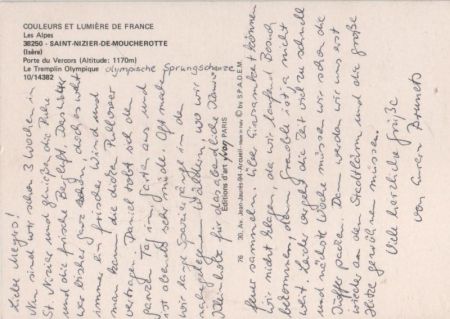 COULEURS ET LUMIÈRE DE FRANCE
Les Alpes
38250 - SAINT-NIZIER-DE-MOUCHEROTTE
(Isère)
Porte du Vercors (Altitude: 1170m)
Le Tremplin Olympique olympische Sprungschanze
10/14382
Editions d'art yvon, PARIS
76 30, Av. Jean-Jaurès 94. Arcueil - Made in France © by S.P.A.D.E.M.
Liebe Megers!
Nun sind wir schon 3 Wochen in
St. Nizier und genießen die Ruhe
und die frische Bergluft. Das Wetter
war bisher nur schön, doch es weht
immer ein frischer Wind und
man kann die dicken Pullover
vertragen. Daniel tobt sich den
ganzen Tag im Garten aus und
ist abends sehr müde. Oft machen
wir lange Spaziergänge in den
nahegelegenen Wäldchen, wo wir
Kleinholz für das abendliche
feuer sammeln. Über Einsamkeit können
wir nicht klagen, da wir laufend Besuch
bekommen, denn Grenoble ist ja nicht
weit. Leider vergeht die Zeit viel zu schnell
und nächste Woche müssen wir schon die
Koffer packen. Dann werden wir uns erst
wieder an den Stadtlärm und die große
Hitze gewöhnen müssen.
Viele herzliche Grüße
von Euren